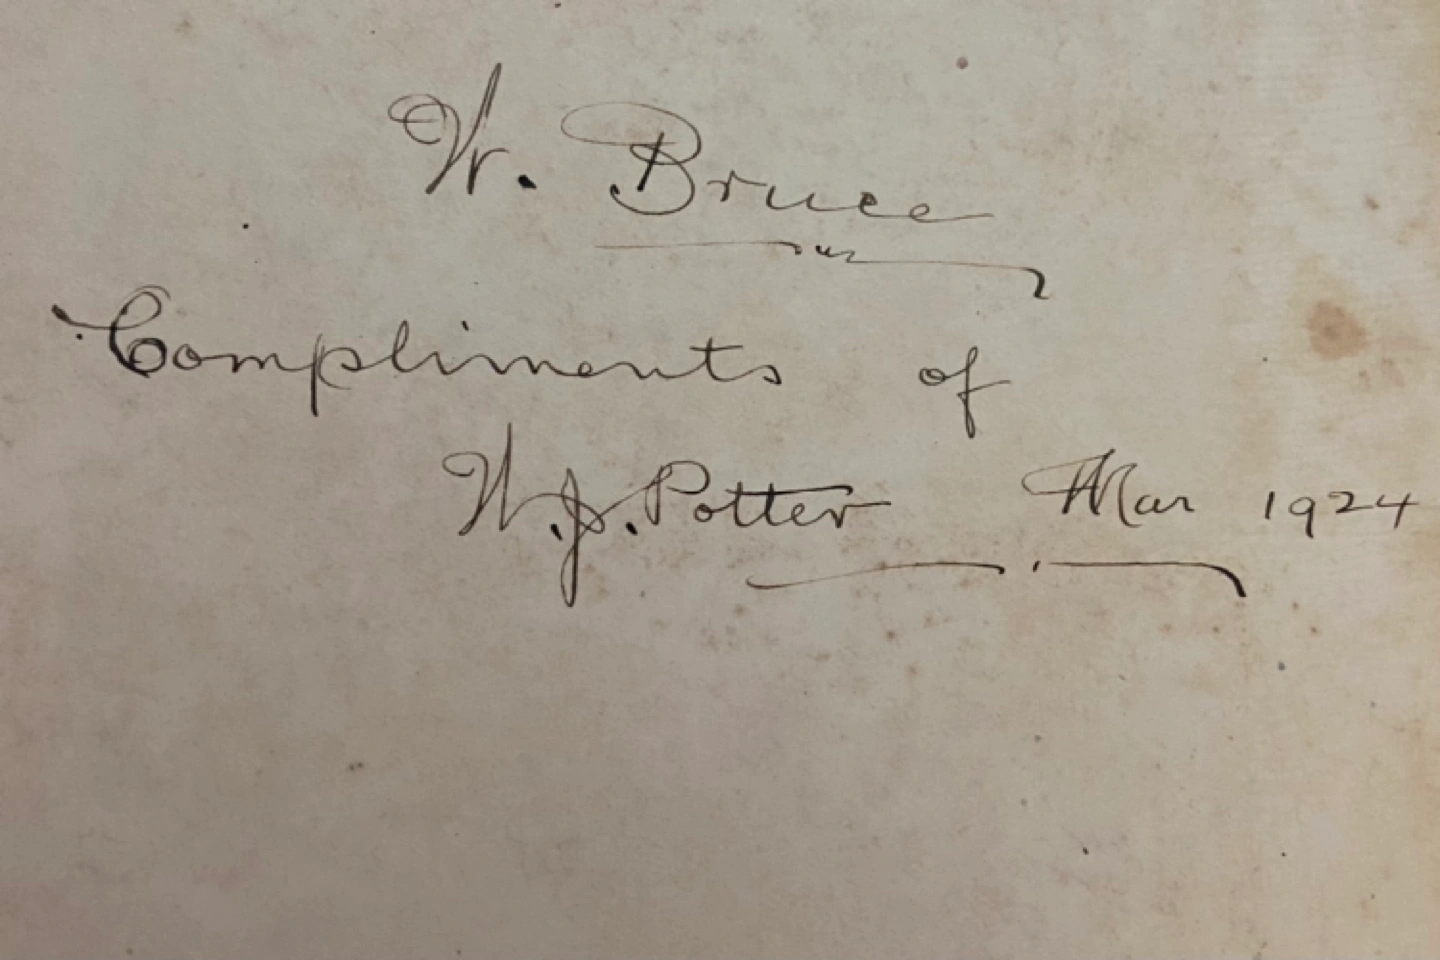 W. Bruce
Compliments of
W.J. Potter Mar 1924